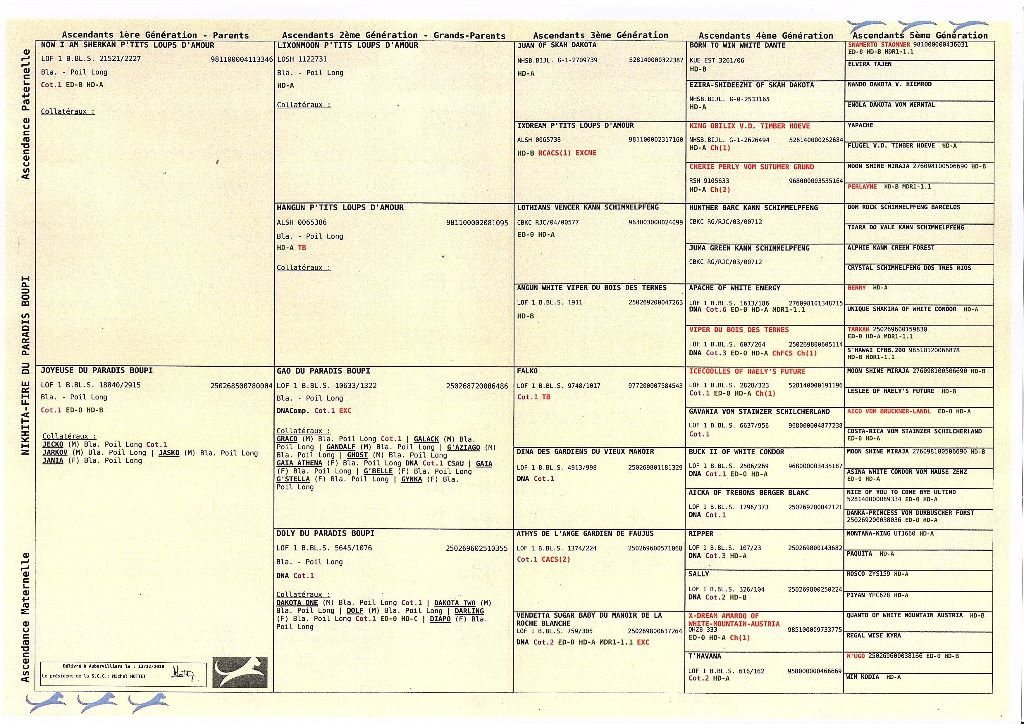 Ascendants 1ère Génération - Parents
Ascendants 2ème Génération - Grands-Parents
Ascendants 3ème Génération
Ascendants 4ème Génération
Ascendants 5ème Génération
Ascendance Paternelle
NIKHITA-FIRE DU PARADIS BOUPI
Ascendance Maternelle
NOW I AM SHERKAN P'TITS LOUPS D'AMOUR
LOF 1 B.BL.S. 21521/2227 981100004113346
Bla. - Poil Long
Cot.1 ED-0 HD-A
Collatéraux :
JOYEUSE DU PARADIS BOUPI
LOF 1 B.BL.S. 18840/2915 250268500780004
Bla. - Poil Long
Cot.1 ED-0 HD-B
Collatéraux :
JECKO (M) Bla. Poil Long Cot.1
JARKOV (M) Bla. Poil Long | JASKO (M) Bla. Poil Long
JANIA (F) Bla. Poil Long
Délivré à Aubervilliers le : 12/12/2018
Le président de la S.C.C.: Michel MOTTET
LIXONMOON P'TITS LOUPS D'AMOUR
LOSH 1122731
Bla. - Poil Long
HD-A
Collatéraux :
HANGUN P'TITS LOUPS D'AMOUR
ALSH 0065386 981100002081095
Bla. - Poil Long
HD-A TB
Collatéraux :
GAO DU PARADIS BOUPI
LOF 1 B.BL.S. 10633/1322 250268720006486
Bla. - Poil Long
DNAComp. Cot.1 EXC
Collatéraux :
GRACO (M) Bla. Poil Long Cot.1 | GALACK (M) Bla.
Poil Long | GANDALF (M) Bla. Poil Long | G'AZIAGO (M)
Bla. Poil Long | GHOST (M) Bla. Poil Long
GAIA ATHENA (F) Bla. Poil Long DNA Cot.1 CSAU | GAIA
(F) Bla. Poil Long | G'BELLE (F) Bla. Poil Long
G'STELLA (F) Bla. Poil Long | GYNKA (F) Bla.
Poil Long
DOLY DU PARADIS BOUPI
LOF 1 B.BL.S. 5645/1076 250269602510355
Bla. - Poil Long
DNA Cot.1
Collatéraux :
DAKOTA ONE (M) Bla. Poil Long Cot.1 | DAKOTA TWO (M)
Bla. Poil Long | DOLF (M) Bla. Poil Long | DARLING
(F) Bla. Poil Long Cot.1 ED-0 HD-C | DIAPO (F) Bla.
Poil Long
JUAN OF SKAH DAKOTA
NHSB.BIJL. G-1-2709739 528140000322387
HD-A
IXDREAM P'TITS LOUPS D'AMOUR
ALSH 0065738 981100002317160
HD-B RCACS(1) EXCNE
LOTHIANS VENCER KANN SCHIMMELPFENG
CBKC RJC/04/00577 963003000024099
ED-0 HD-A
ANGUN WHITE VIPER DU BOIS DES TERNES
LOF 1 B.BL.S. 1911 250269200047263
HD-B
FALKO
LOF 1 B.BL.S. 9748/1017 977200007584543
Cot.1 TB
DINA DES GARDIENS DU VIEUX MANOIR
LOF 1 B.BL.S. 4913/998 250269801181329
DNA Cot.1
ATHYS DE L'ANGE GARDIEN DE FAUJUS
LOF 1 B.BL.S. 1374/224 250269600571060
Cot.1 CACS(2)
VENDETTA SUGAR BABY DU MANOIR DE LA
ROCHE BLANCHE
LOF 1 B.BL.S. 759/305 250269800617264
DNA Cot.2 ED-0 HD-A MDR1-1.1 EXC
BORN TO WIN WHITE DANTE
KUE EST.3261/06
HD-B
EZIRA-SHIDEEZHI OF SKAH DAKOTA
NHSB.BIJL. G-0-2533165
HD-A
KING OBILIX V.D. TIMBER HOEVE
NHSB.BIJL. G-1-2626494 528140000252684
HD-A Ch(1)
CHERIE PERLY VOM SUTUMER GRUND
RSH 9105633 968000003535164
HD-A Ch(2)
HUNTHER BARC KANN SCHIMMELPFENG
CBKC RG/RJC/03/00712
JUMA GREEN KANN SCHIMMELPFENG
CBKC RG/RJC/03/00712
APACHE OF WHITE ENERGY
LOF 1 B.BL.S. 1613/186 276098101348715
DNA Cot.6 ED-0 HD-A MDR1-1.1
VIPER DU BOIS DES TERNES
LOF 1 B.BL.S. 607/264 250269800605114
DNA Cot.3 ED-0 HD-A ChFCS Ch(1)
ICECOOLLES OF HAELY'S FUTURE
LOF 1 B.BL.S. 2828/323 528140000191190
Cot.1 ED-0 HD-A Ch(1)
GAVANIA VOM STAINZER SCHILCHERLAND
LOF 1 B.BL.S. 6637/956 968000004877238
Cot.1
BUCK II OF WHITE CONDOR
LOF 1 B.BL.S. 2506/269 968000003435187
DNA Cot.1 ED-0 HD-A
AICKA OF TREBONS BERGER BLANC
LOF 1 B.BL.S. 1796/373 250269200042121
DNA Cot.1
RIPPER
LOF 1 B.BL.S. 107/23 250269800143682
DNA Cot.3 HD-A
SALLY
LOF 1 B.BL.S. 326/104 250269800250224
DNA Cot.2 HD-B
X-DREAM AMAROQ OF
WHITE-MOUNTAIN-AUSTRIA
OHZB 333 985100009733775
ED-0 HD-A Ch(1)
T'HAVANA
LOF 1 B.BL.S. 616/162 950000000466669
Cot.2 HD-A
ED-0 HD-B MDR1-1.1
ELVIRA TAJEN
NANDO DAKOTA V. RIEMROD
ENOLA DAKOTA VOM WERNTAL
YAPACHE
FLUGEL V.D. TIMBER HOEVE HD-A
MOON SHINE MIRAJA 276098100506690 HD-B
PERLAYNE HD-B MDR1-1.1
DOM ROCK SCHIMMELPFENG BARCELOS
TIARA DO VALE KANN SCHIMMELPFENG
ALPHIE KANN GREEN FOREST
CRYSTAL SCHIMMELFENG DOS TRES RIOS
BERRY HD-A
UNIQUE SHAKIRA OF WHITE CONDOR HD-A
TARKAN 250269600159830
ED-0 HD-A MDR1-1.1
S'HAWAI CFBB.200 985101200668
HD-B MDR1-1.1
MOON SHINE MIRAJA 276098100506690 HD-B
LESLEE OF HAELY'S FUTURE HD-B
RICO VOM BRUCKNER-LANDL ED-0 HD-A
COSTA-RICA VOM STAINZER SCHILCHERLAND
ED-0 HD-A
MOON SHINE MIRAJA 276098100506690 HD-B
ASINA WHITE CONDOR VOM HAUSE ZENZ
ED-0 HD-A
NICE OF YOU TO COME BYE ULTIMO
528140000089334 ED-0 HD-A
DANKA-PRINCESS VOM DURBUSCHER FORST
250269200038036 ED-0 HD-A
MONTANA-KING UTJ660 HD-A
PAQUITA HD-A
ROSCO ZYS159 HD-A
PIYAN YPC628 HD-A
QUANTO OF WHITE MOUNTAIN AUSTRIA HD-B
REGAL WISE KYRA
N'UGO 250269600038166 ED-0 HD-B
WIN KODIA HD-A